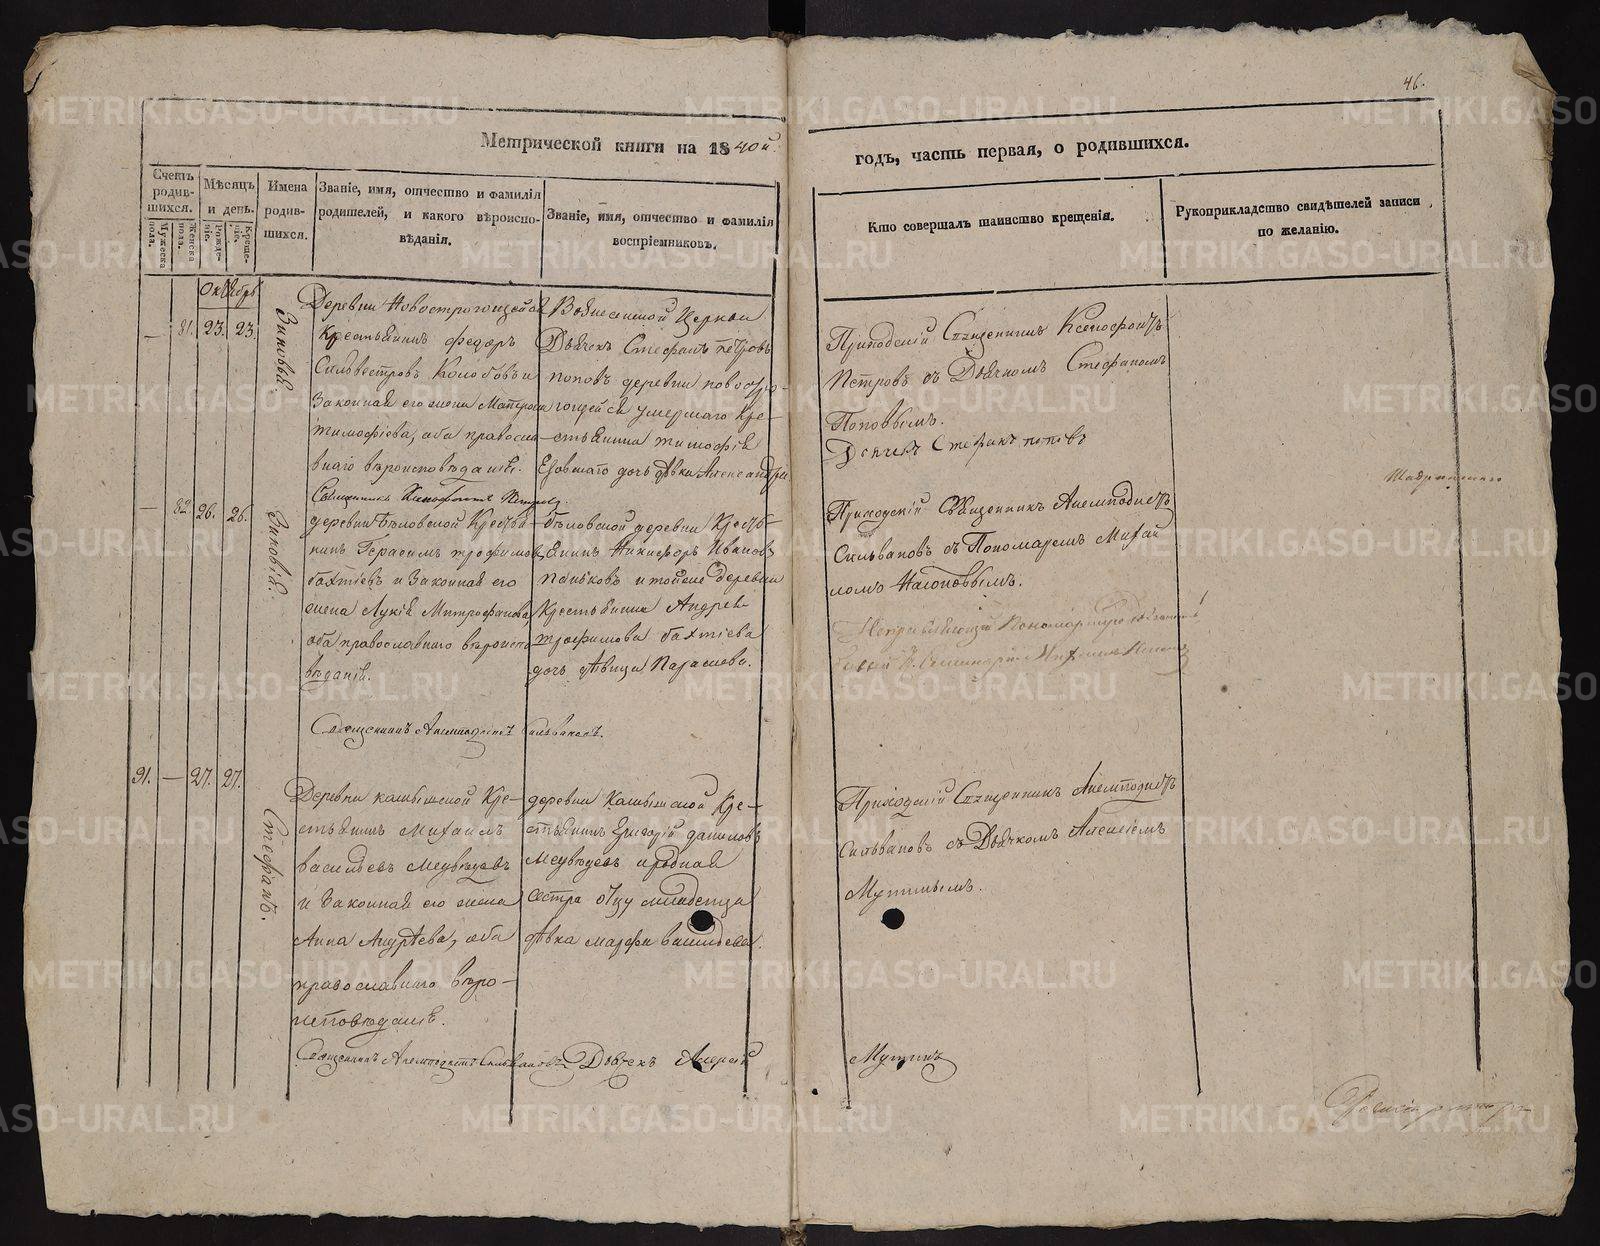 46.
Метрической книги на 1840й
годъ, часть первая, о родившихся.
Счетъ родив-шихся.
Мужеска пола.
Женска пола.
Мѣсяцъ и день.
Рожде-нія.
Креще-нія.
Имена родив-шихся.
Званіе, имя, отчество и фамилія
родителей, и какого вѣроиспо-
вѣданія.
Званіе, имя, отчество и фамилія
воспріемниковъ.
Кто совершалъ таинство крещенія.
Рукоприкладство свидѣтелей записи
по желанію.
Октябрь
— 81. 23. 23.
Зиновья.
Деревни
Крестьянинъ Федоръ
Сильвестровъ Колобовъ и
Законная его жена Матрона
Тимофіева, оба православ-
наго вѣроисповѣданія.
Вознесенской Церкви
Дьячекъ Стефанъ Петровъ
Поповъ деревни новостро-
умершаго Кре-
стьянина Тимофія
дочь дѣвка Александра
Приходскій Священникъ Ксенофонтъ
Петровъ съ Дьячкомъ Стефаномъ
Поповымъ.
Дьячекъ Стефанъ Поповъ
Священникъ Ксенофонтъ Петровъ.
— 82. 26. 26.
Зиновія.
деревни Бѣловской Крестья-
нинъ Герасимъ Трофимовъ
Бахтіевъ и Законная его
жена Лукія Митрофанова,
оба православнаго вѣроиспо-
вѣданія.
Бѣловской деревни Кресть-
янинъ Никифоръ Ивановъ
Паньковъ и тойже деревни
Крестьянина Андрея
Трофимова Бахтіева
дочь дѣвица Параскева.
Приходскій Священникъ Анемподистъ
Сильвановъ съ Пономаремъ Михай-
ломъ
Священникъ Анемподистъ Сильвановъ.
91. — 27. 27.
Стефанъ.
Деревни камышской Кре-
стьянинъ Михаилъ
Васильевъ Медвѣдевъ
и Законная его жена
Анна Андрѣева, оба
православнаго вѣро-
исповѣданія.
деревни Камышской Кре-
стьянинъ Григорій Даниловъ
Медвѣдевъ и родная
сестра отцу младенца
дѣвка Марфа Васильева.
Приходскій Священникъ Анемподистъ
Сильвановъ съ Дьячкомъ Алексіемъ
Мутинымъ.
Священникъ Анемподистъ Сильвановъ. Дьячекъ Алексей
Мутинъ
METRIKI.GASO-URAL.RU